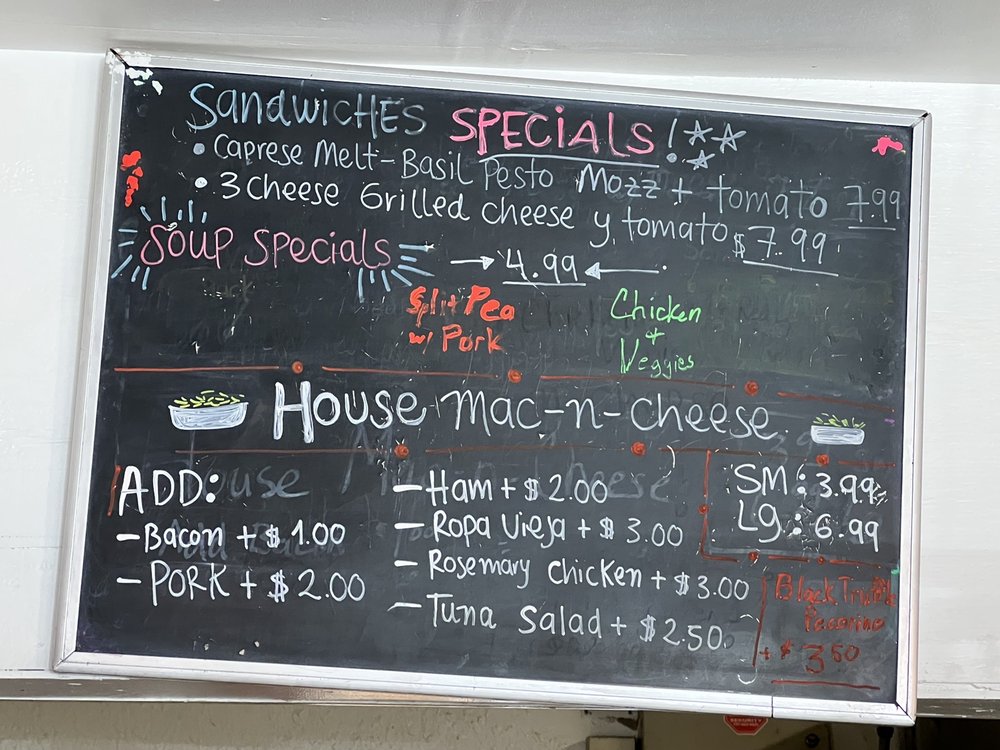 SandwiCHES SPECiALS!
• Caprese Melt - Basil Pesto Mozz + tomato 7.99
• 3 Cheese Grilled cheese y tomato $7.99
Soup Specials
4.99
Split Pea
w/ Pork
Chicken
+
Veggies
House mac-n-cheese
ADD:
- Bacon + $1.00
- PORK + $2.00
- Ham + $2.00
- Ropa Vieja + $3.00
- Rosemary Chicken + $3.00
- Tuna Salad + $2.50
SM: 3.99
Lg: 6.99
Black Truffle
Pecorino
+ $3.50
SECURITY